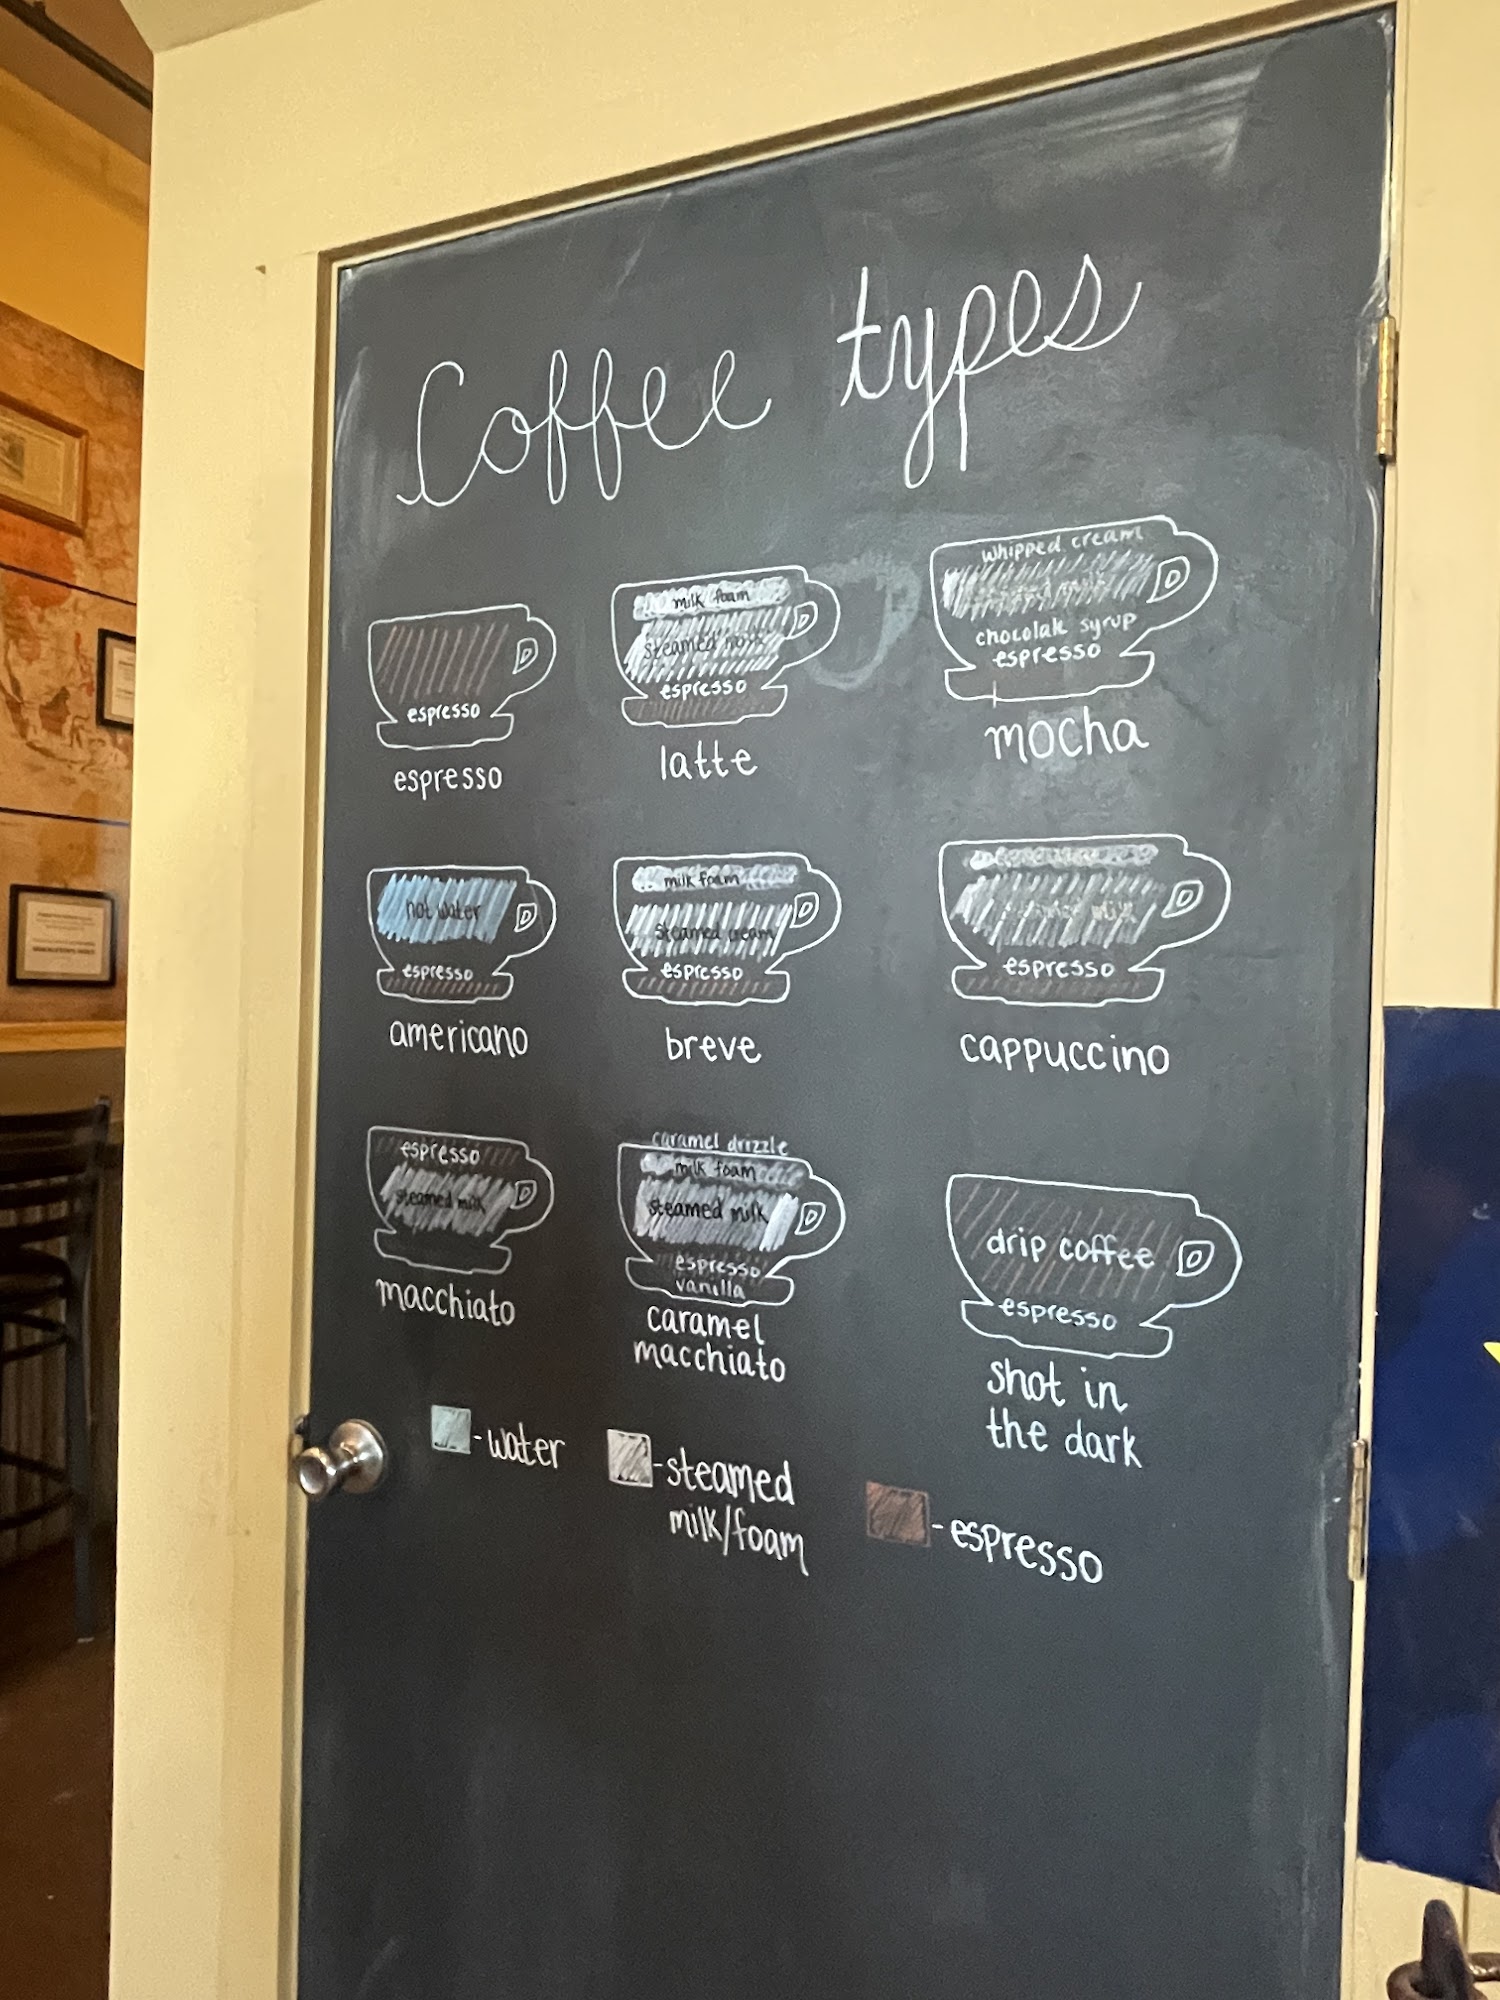 Coffee types
espresso
espresso
milk foam
steamed
espresso
latte
whipped cream
chocolate syrup
espresso
mocha
hot water
espresso
americano
milk foam
steamed cream
espresso
breve
milk
espresso
cappuccino
espresso
steamed milk
macchiato
caramel drizzle
milk foam
steamed milk
espresso
vanilla
caramel
macchiato
drip coffee
espresso
shot in
the dark
- water
- steamed
milk/foam
- espresso